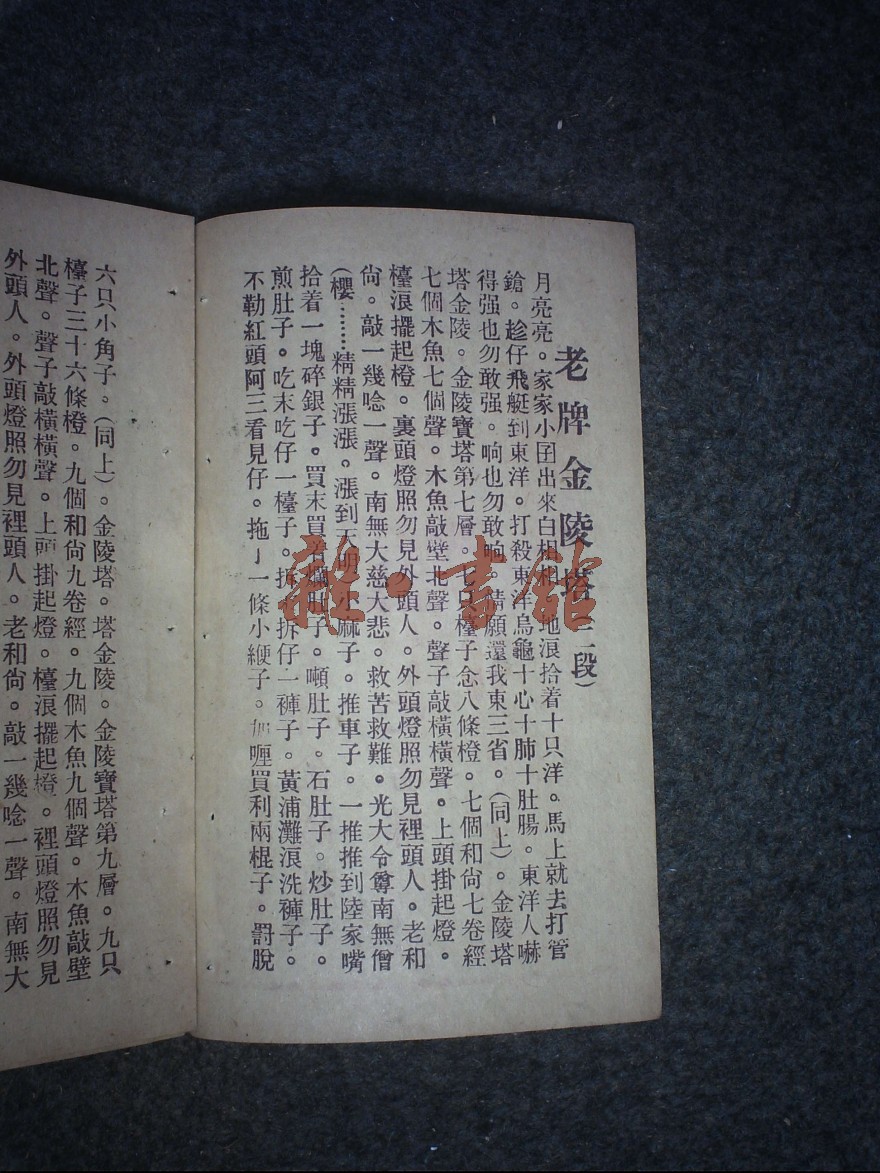 老牌金陵塔(二段)
月亮亮。家家小囝出來白相相。地浪拾着十只洋。馬上就去打管
鎗。趁仔飛艇到東洋。打殺東洋烏龜十心十肺十肚腸。東洋人嚇
得强也勿敢强。响也勿敢响。情願還我東三省。(同上)。金陵塔
塔金陵。金陵寶塔第七層。七只檯子念八條櫈。七個和尙七卷經
七個木魚七個聲。木魚敲壁北聲。聲子敲橫橫聲。上頭掛起燈。
檯浪擺起橙。裏頭燈照勿見外頭人。外頭燈照勿見裡頭人。老和
尙。敲一幾唸一聲。南無大慈大悲。救苦救難。光大令尊南無僧
(櫻………精精漲漲。漲到天明。小麻子。推車子。一推推到陸家嘴
拾着一塊碎銀子。買末買着爛肚子。噸肚子。石肚子。炒肚子。
煎肚子。吃末吃仔一檯子。拆拆仔一褲子。黃浦灘浪洗褲子。
不勒紅頭阿三看見仔。拖亅一條小綆子。喱買利兩棍子。罰脫
六只小角子。(同上)。金陵塔。塔金陵。金陵寶塔第九層。九只
檯子三十六條橙。九個和尙九卷經。九個木魚九個聲。木魚敲壁
北聲。聲子敲橫橫聲。上頭掛起燈。檯浪擺起橙。裡頭燈照勿見
外頭人。外頭燈照勿見裡頭人。老和尙。敲一幾唸一聲。南無大
雜·書館